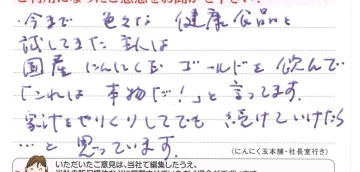 ・今まで 色々な 健康食品を
試してきた主人は
国産にんにく玉ゴールドを飲んで
「これは 本物だ!」と言ってます。
家計をやりくりしてでも 続けていけたら
…と 思っています。
(にんにく玉本舗・社長室行き)
いただいたご意見は、当社にて編集したうえ、